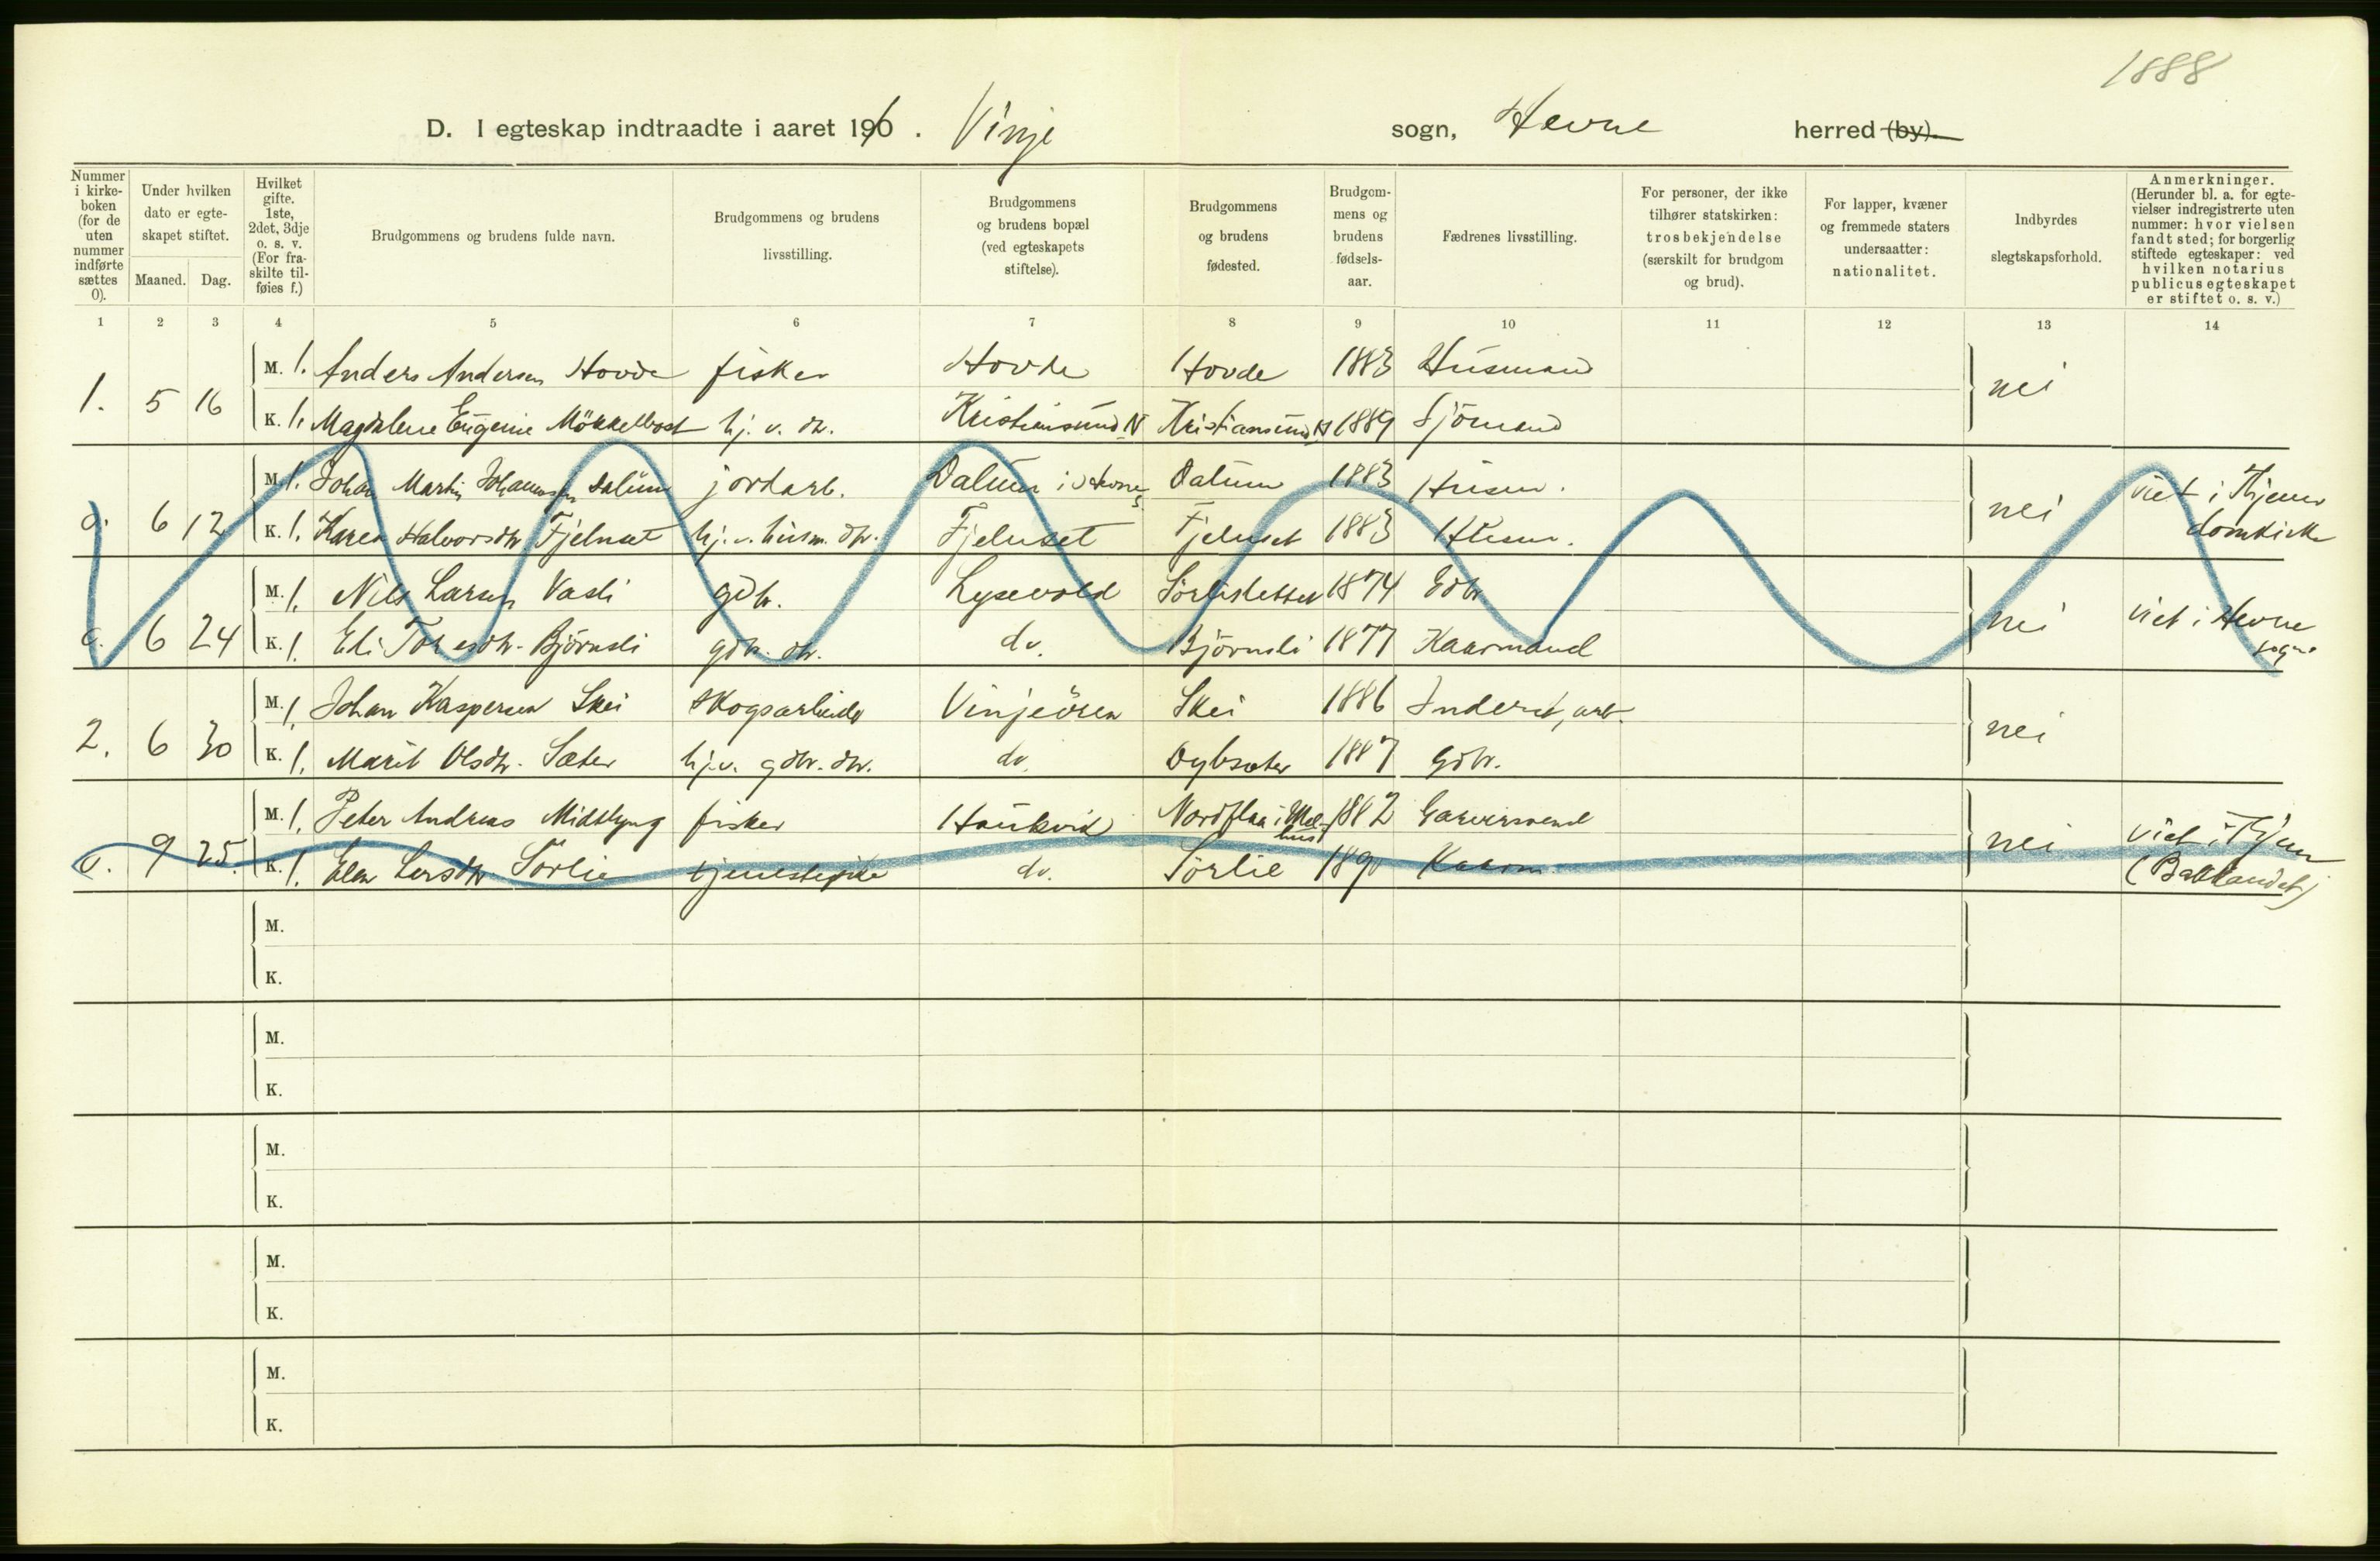 1888
D. I egteskap indtraadte i aaret 1910. Vinje sogn, Hevne herred (by).
Nummer i kirke-boken (for de uten nummer indførte sættes 0).
Under hvilken dato er egte-skapet stiftet.
Maaned. Dag.
Hvilket gifte. 1ste, 2det, 3dje o. s. v. (For fra-skilte til-føies f.)
Brudgommens og brudens fulde navn.
Brudgommens og brudens livsstilling.
Brudgommens og brudens bopæl (ved egteskapets stiftelse).
Brudgommens og brudens fødested.
Brudgom-mens og brudens fødsels-aar.
Fædrenes livsstilling.
For personer, der ikke tilhører statskirken: trosbekjendelse (særskilt for brudgom og brud).
For lapper, kvæner og fremmede staters undersaatter: nationalitet.
Indbyrdes slegtskapsforhold.
Anmerkninger. (Herunder bl. a. for egte-vielser indregistrerte uten nummer: hvor vielsen fandt sted; for borgerlig stiftede egteskaper: ved hvilken notarius publicus egteskapet er stiftet o. s. v.)
1 2 3 4 5 6 7 8 9 10 11 12 13 14
1. 5 16 M. 1. Anders Andersen Hovde fisker Hovde Hovde 1883 Husmand nei
K. 1. Magdalene Eugenie Mökkelbost hj. v. dr. Kristiansund N Kristiansund N 1889 Sjömand
0. 6 12 M. 1. Johan Martin Johannessen Dalum jordarb. Dalum i Hevne s. Dalum 1883 Husm. nei viet i Thjems domkirke
K. 1. Karen Halvorsdtr Fjelnset hj. v. husm. dtr. Fjelnset Fjelnset 1883 Husm.
0. 6 24 M. 1. Nils Larsen Vasli gdbr. Lysevold Sörlisletten 1874 Gdbr nei viet i Hevne sogn
K. 1. Eli Toresdtr. Björnsli gdbr. dr. do. Björnsli 1877 Kaarmand
2. 6 30 M. 1. Johan Kaspersen Skei skogsarbeider Vinjeören Skei 1886 Inderst, arb. nei
K. 1. Marit Olsdtr. Sæter hj.v. gdbr. dtr. do. Dybsæter 1887 Gdbr.
0. 9 25. M. 1. Peter Andreas Midtlyng fisker Haukvik Nordflaa i Mel-hus 1882 Garversvend nei viet i Thjem (Baklandet)
K. 1. Elen Larsdtr Sörlie tjenestepike do. Sörlie 1890 Kaarm.
M.
K.
M.
K.
M.
K.
M.
K.
M.
K.